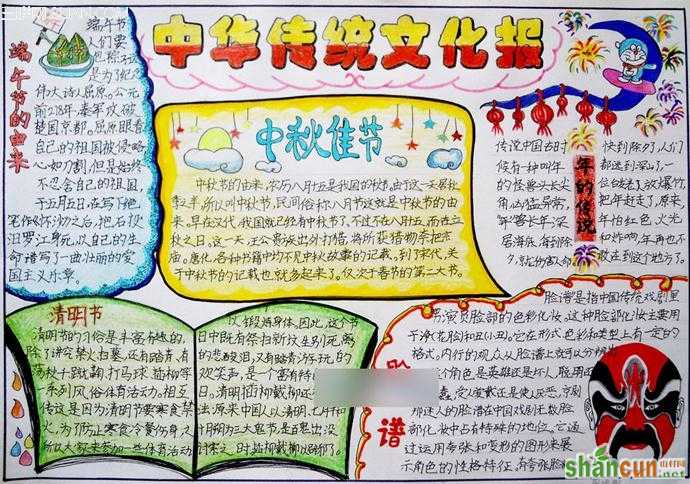 中华传统文化报
端午节的由来
端午节
人们要
是为了纪念
伟大诗人屈原。公元
前278年，秦军攻破
楚国京都。屈原眼看
自己的祖国被侵略
心如刀割，但是始终
不忍舍自己的祖国，
于五月五日，在写下绝
笔作怀沙之后，抱石投
汨罗江身死，以自己的生
命谱写了一曲壮丽的爱
国主义乐章。
中秋佳节
中秋节的由来，农历八月十五是我国的秋节，由于这一天居秋
季之半，所以叫中秋节，民间俗称八月节这就是中秋节的由
来。早在汉代，我国就已经有中秋节了，不过不在八月十五，而在立
秋之日，这一天，王公贵族出外打猎，将所获猎物奈把宗
庙。唐化，各种书籍中均不见中秋故事的记载，到了宋代，关
于中秋节的记载也就多起来了。仅次于春节的第二大节。
年的传说
传说中国古时
候有一种叫年
的怪兽头长尖
角凶猛异常，
年兽长年深
居海底，每到除
夕，
快到除夕人们
都逃到深山了一
位
把年赶走了，原来，
年怕红色，火光
和炸响，年再也不
敢到这个地方了。
清明节
清明节的习俗是丰富有趣的，
除了讲究禁火扫墓，还有踏青，有
荡秋千蹴鞠打马球插柳等
一系列风俗体育活动。相互
传这是因为清明节要寒食禁
火，为了防止寒食冷餐伤身，
所以大家来参加一些体育活动
以锻炼身体，因此，这个节
日中既有祭扫新坟生别死离
的悲酸泪，又有踏青游玩的
欢笑声，是一个富有特
清明插柳戴柳还
法原来中国人以清明，七月半
十月朔为三大鬼节是百鬼出没
讨索之时插柳戴柳
脸谱
脸谱是指中国传统戏剧里
男演员脸部的色彩化妆，这种脸部化妆主要用
于净(花脸)和丑(小丑)。它在形式，色彩和类型上有一定的
格式，内行的观众从脸谱上就可以分辨
个角色，是英雄还是坏人，聪明
京剧
那迷人的脸谱在中国戏剧无数脸
部化妆中占有特殊的地位，它通
过运用夸张和变形的图形来展
示角色的性格特征，有夸张脸
shancun.net
山村网